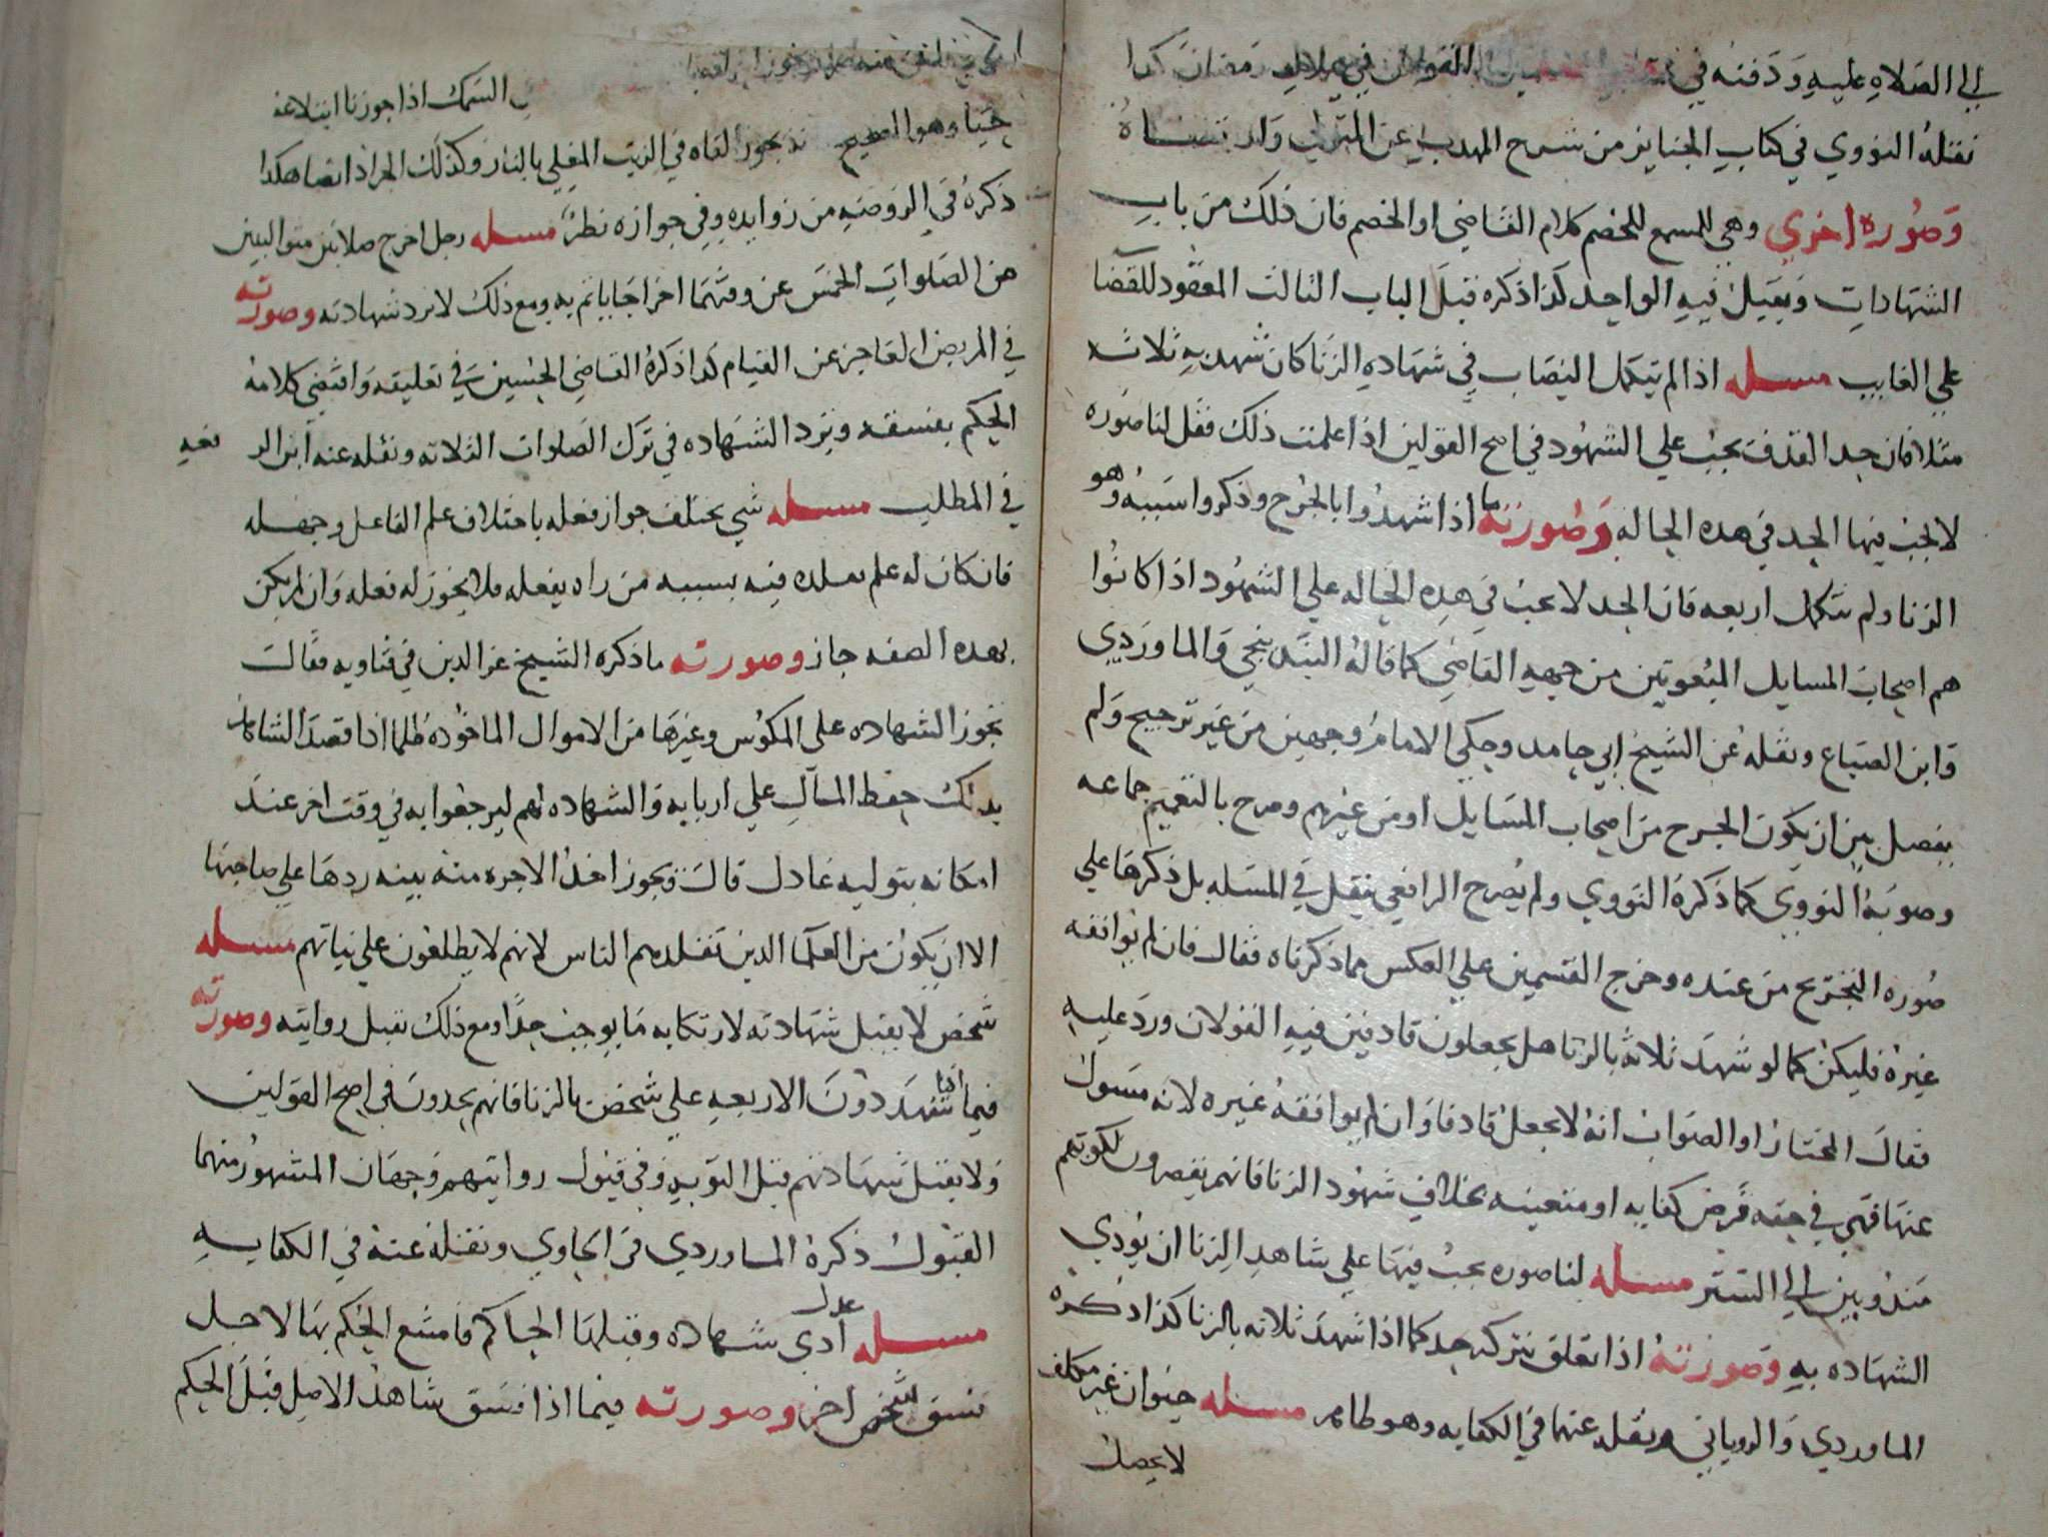 الي الصلاه عليه ودفنه في القولان في هلال رمضان كذا
نقله النووي في كتاب الجنايز من شرح المهذب عن
وصوره اخري وهي المسمع للخصم كلام القاضي او الخصم فان ذلك من باب
الشهادات ويقبل فيه الواحد كذا ذكره قبل الباب الثالث المعقود للقضا
علي الغايب مسله اذا لم تكمل النصاب في شهاده الزنا كان شهد به ثلاثه
مثلا فان حد القذف يجب علي الشهود في اصح القولين اذا علمت ذلك فقل لنا صوره
لا يجب فيها الحد في هده الحاله وصورته ما اذا شهدوا بالجرح وذكروا سببه وهو
الزنا ولم تتكمل اربعه فان الحد لا يجب في هذه الحاله علي الشهود اذا كانوا
هم اصحاب المسايل المبعوثين من جهه القاضي كما قاله البندنيجي والماوردي
وابن الصباغ ونقله عن الشيخ ابي حامد وحكي الامام وجهين من غير ترجيح ولم
يفصل بين ان يكون الجرح من اصحاب المسايل او من غيرهم وصرح بالتعميم جماعه
وصوبه النووي كما ذكره النووي ولم يصرح الرافعي بنقل في المسله بل ذكرها علي
صوره التخريج من عنده وخرج القسمين علي العكس مما ذكرناه فقال فان لم يوافقه
غيره فليكن كما لو شهد ثلاثه بالزنا هل يجعلون قاذفين فيه القولان ورد عليه
فقال المختار او الصواب انه لا يجعل قاذفا وان لم يوافقه غيره لانه مسول
عنها فهي في حقه فرض كفايه او متعينه بخلاف شهود الزنا فانهم يقصرون لكونهم
مندوبين الي الستر مسله لنا صوره يجب فيها علي شاهد الزنا ان يودي
الشهاده به وصورته اذا تعلق بتركه حد كما اذا شهد ثلاثه بالزنا كذا ذكره
الماوردي والروياني ونقله عنهما في الكفايه وهو ظاهر مسله حيوان غير مكلف
لا يحصل
السمك اذا جوزنا ابتلاعه
حيا وهو الصحيح يجوز القاه في الزيت المغلي بالنار وكذلك الجراد ايضا هكذا
ذكره في الروضه من زوايده وفي جوازه نظر مسله رجل اخرج صلاتين متواليتين
من الصلوات الخمس عن وقتهما اخراجا ياثم به ومع ذلك لا ترد شهادته وصورته
في المريض العاجز عن القيام كذا ذكره القاضي الحسين في تعليقه واقتضي كلامه
الحكم بفسقه وترد الشهاده في ترك الصلوات الثلاثه ونقله عنه ابن الرفعه
في المطلب مسله شي يختلف جواز فعله باختلاف علم الفاعل وجهله
فان كان له علم يقلده فيه بسببه من راه يفعله فلا يجوز له فعله وان لم يكن
بهده الصفه جاز وصورته ما ذكره الشيخ عز الدين في فتاويه فقال
تجوز الشهاده علي المكوس وغيرها من الاموال الماخوذه ظلما اذا قصد الشاهد
بذلك حفظ المال علي اربابه والشهاده لهم ليرجعوا به في وقت اخر عند
امكانه بتوليه عادل قال ويجوز اخذ الاجره منه بنيه ردها علي صاحبها
الا ان يكون من العلما الذين تقلدهم الناس لانهم لا يطلعون علي نياتهم مسله
شخص لا يقبل شهادته لارتكابه ما يوجب حدا ومع ذلك نقبل روايته وصورته
فيما اذا شهد دون الاربعه علي شخص بالزنا فانهم يحدون في اصح القولين
ولا يقبل شهادتهم قبل التوبه وفي قبول روايتهم وجهان المشهور منهما
القبول ذكره الماوردي في الحاوي ونقله عنه في الكفايه
مسله عدل ادي شهاده وقبلها الحاكم فامتنع الحكم بها لاجل
فسق شخص اخر وصورته فيما اذا فسق شاهد الاصل قبل الحكم